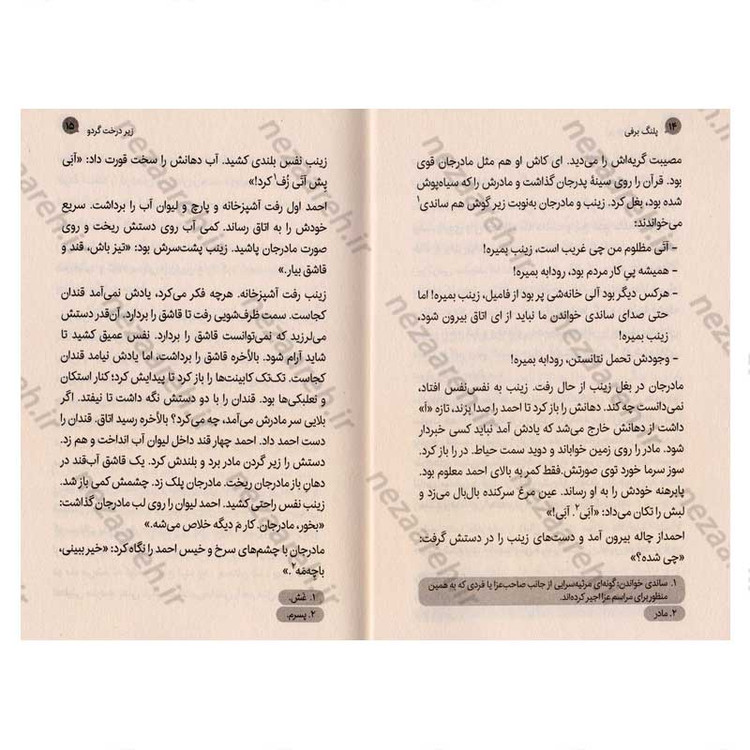 ۱۴ پلنگ برفی
مصیبت گریه‌اش را می‌دید. ای کاش او هم مثل مادرجان قوی
بود. قرآن را روی سینهٔ پدرجان گذاشت و مادرش را که سیاه‌پوش
شده بود، بغل کرد. زینب و مادرجان به‌نوبت زیر گوش هم ساندی۱
می‌خواندند:
– آتی مظلوم من چی غریب است، زینب بمیره!
– همیشه پیِ کار مردم بود، رودابه بمیره!
– هرکس دیگر بود آلی خانه‌شی پر بود از فامیل، زینب بمیره! اما
حتی صدای ساندی خواندن ما نباید از ای اتاق بیرون شود،
زینب بمیره!
– وجودش تحمل نتانستن، رودابه بمیره!
مادرجان در بغل زینب از حال رفت. زینب به نفس‌نفس افتاد،
نمی‌دانست چه کند. دهانش را باز کرد تا احمد را صدا بزند، تازه «اَ»
داشت از دهانش خارج می‌شد که یادش آمد نباید کسی خبردار
شود. مادر را روی زمین خواباند و دوید سمت حیاط. در را باز کرد.
سوز سرما خورد توی صورتش. فقط کمر به بالای احمد معلوم بود.
پابرهنه خودش را به او رساند. عین مرغ سرکنده بال‌بال می‌زد و
لبش را تکان می‌داد: «آبَی۲. آبَی!»
احمد از چاله بیرون آمد و دست‌های زینب را در دستش گرفت:
«چی شده؟»
۱. ساندی خواندن: گونه‌ای مرثیه‌سرایی از جانب صاحب‌عزا یا فردی که به همین
منظور برای مراسم عزا اجیر کرده‌اند.
۲. مادر
زیر درخت گردو ۱۵
زینب نفس بلندی کشید. آب دهانش را سخت قورت داد: «آبَی
پِش آتی زُف۱ کرد!»
احمد اول رفت آشپزخانه و پارچ و لیوان آب را برداشت. سریع
خودش را به اتاق رساند. کمی آب روی دستش ریخت و روی
صورت مادرجان پاشید. زینب پشت‌سرش بود: «تیز باش، قند و
قاشق بیار.»
زینب رفت آشپزخانه. هرچه فکر می‌کرد، یادش نمی‌آمد قندان
کجاست. سمت ظرف‌شویی رفت تا قاشق را بردارد. آن‌قدر دستش
می‌لرزید که نمی‌توانست قاشق را بردارد. نفس عمیق کشید تا
شاید آرام شود. بالأخره قاشق را برداشت، اما یادش نیامد قندان
کجاست. تک‌تک کابینت‌ها را باز کرد تا پیدایش کرد؛ کنار استکان
و نعلبکی‌ها بود. قندان را با دو دستش نگه داشت تا نیفتد. اگر
بلایی سر مادرش می‌آمد، چه می‌کرد؟ بالأخره رسید اتاق. قندان را
دست احمد داد. احمد چهار قند داخل لیوان آب انداخت و هم زد.
دستش را زیر گردن مادر برد و بلندش کرد. یک قاشق آب‌قند در
دهانِ باز مادرجان ریخت. مادرجان پلک زد. چشمش کمی باز شد.
زینب نفس راحتی کشید. احمد لیوان را روی لب مادرجان گذاشت:
«بخور، مادرجان. کارَم دیگه خلاص می‌شه.»
مادرجان با چشم‌های سرخ و خیس احمد را نگاه کرد: «خیر ببینی،
باچه‌مَه۲.»
۱. غش.
۲. پسرم.
nezaareh.ir